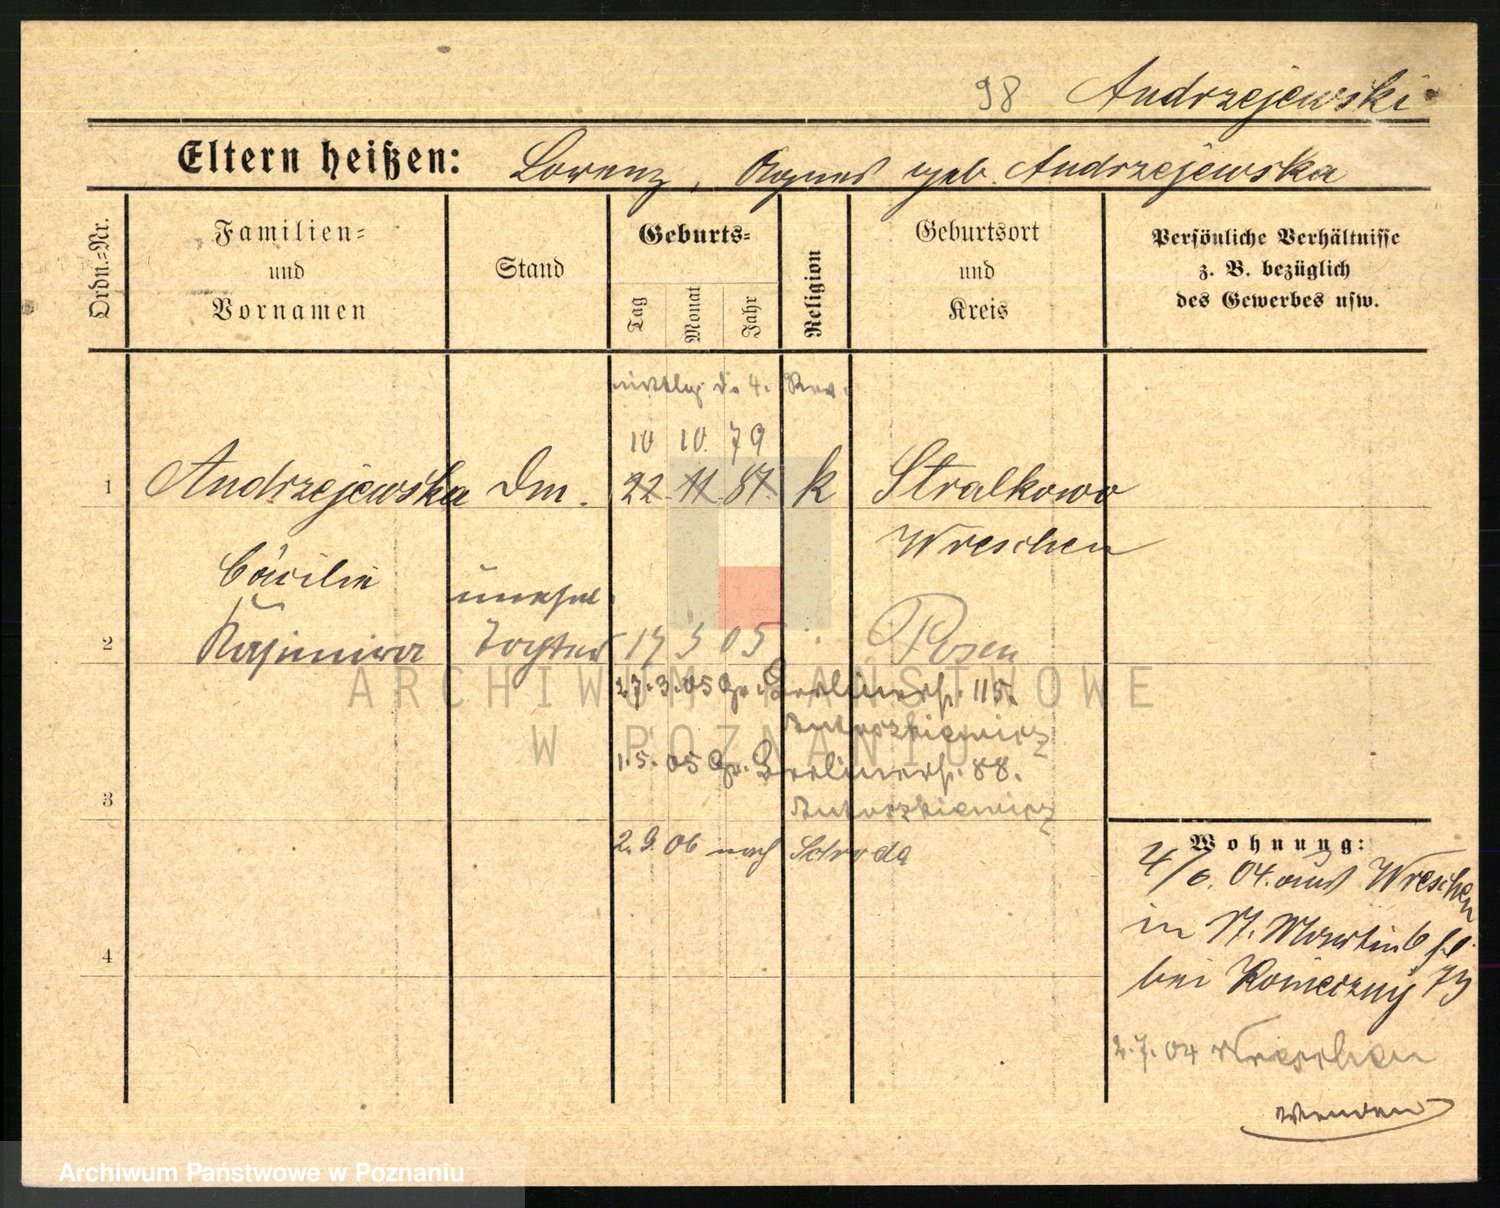 98 Andrzejewski
Eltern heißen: Lorenz, Agnes geb. Andrzejewska
Ordn.-Nr.
Familien-
und
Vornamen
Stand
Geburts-
Tag
Monat
Jahr
Religion
Geburtsort
und
Kreis
Persönliche Verhältnisse
z. B. bezüglich
des Gewerbes usw.
d. 4. Rev.
10 10. 79
1 Andrzejewska Dm. 22. 11. 87. k Stralkowo
Wreschen
Cäcilie
unehel.
2 Kasimira Tochter 17 3 05 Posen
27.3.05 Gr. Berlinerst. 115.
Antoszkiewicz
1.5.05 Gr. Berlinerst. 88.
3 Antoszkiewicz
2.9.06 nach Schroda
4
Wohnung:
4/6. 04. aus Wreschen
in St. Martin
bei Konieczny 73
2.7.04 Wreschen
wenden
ARCHIWUM PAŃSTWOWE
W POZNANIU
Archiwum Państwowe w Poznaniu